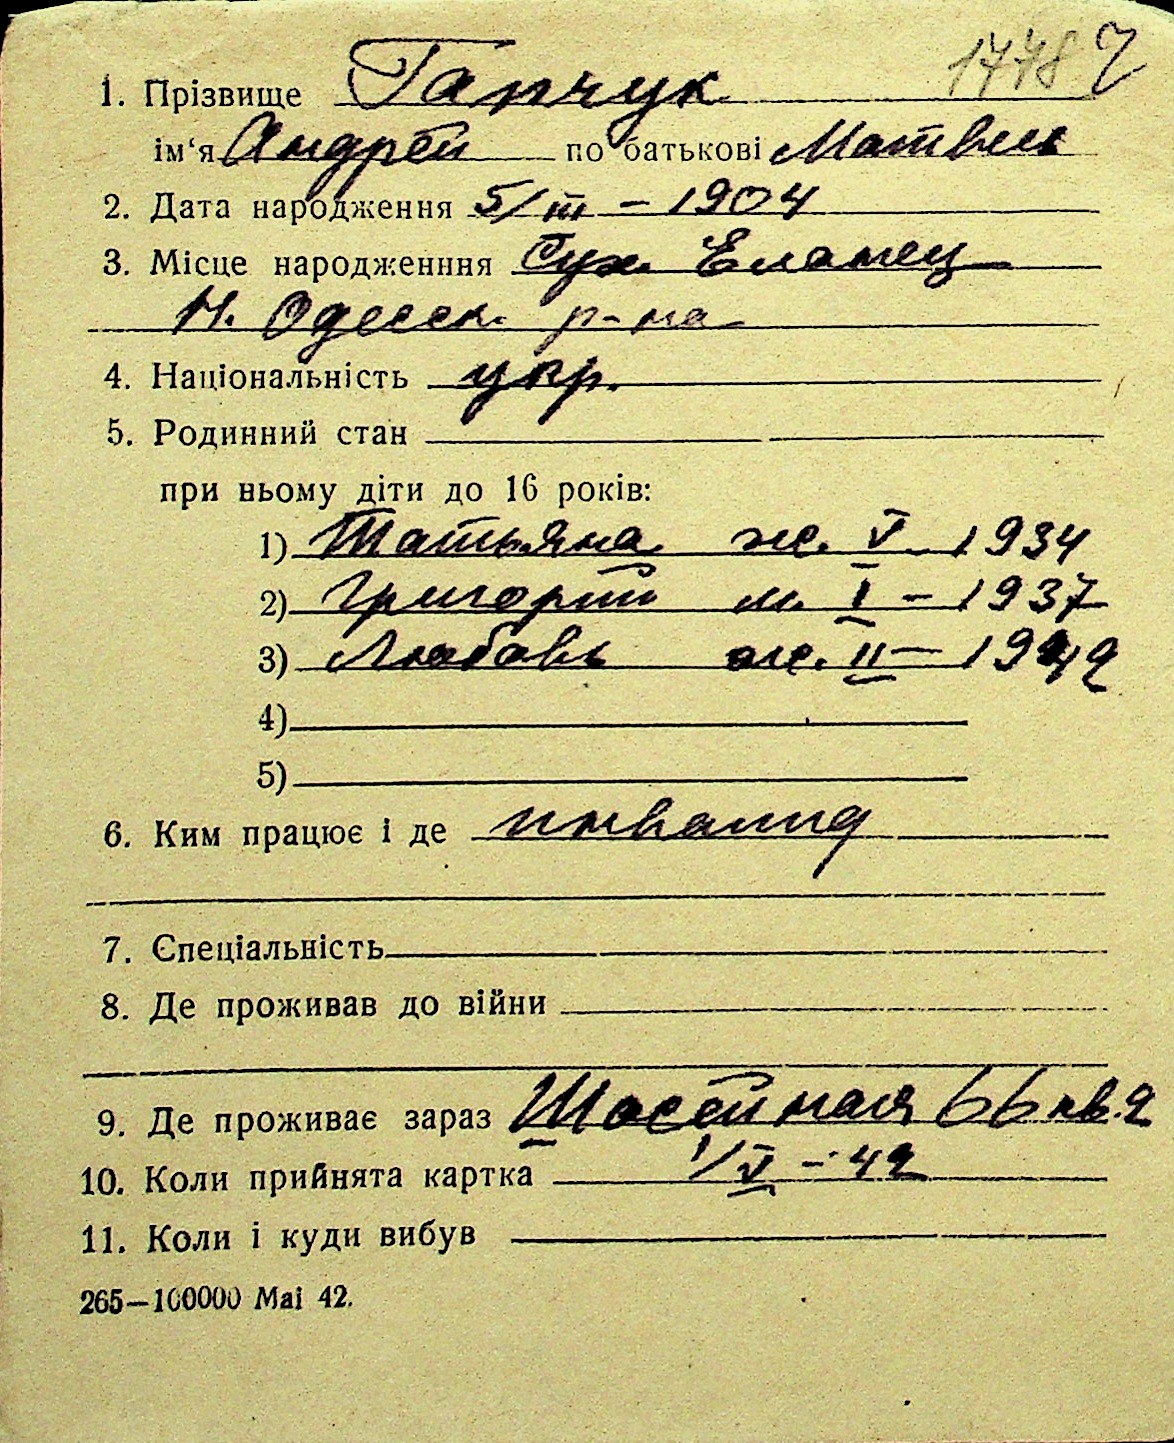 1778
1. Прізвище Гапчук
ім‘я Андрей по батькові Матвеев
2. Дата народження 5/III – 1904
3. Місце народженння Сух. Еланец
Н. Одесск. р-на
4. Національність укр.
5. Родинний стан
при ньому діти до 16 років:
1) Татьяна ж. V – 1934
2) Григорий м. I – 1937
3) Любовь ж. II – 1942
4)
5)
6. Ким працює і де инвалид
7. Єпеціальність
8. Де проживав до війни
9. Де проживає зараз Шоссейная 66 кв. 2
10. Коли прийнята картка 1/V – 42
11. Коли і куди вибув
265—100000 Маі 42.